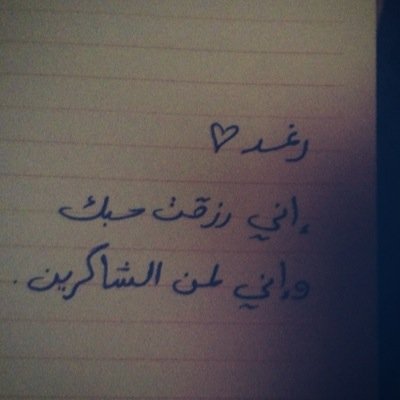 رغد ♡
إني رزقت حبك
وإني لمن الشاكرين.